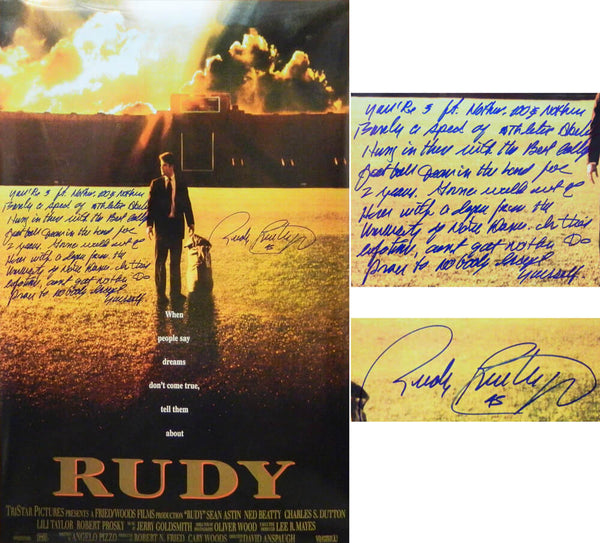 You're 5 ft. Nothin. 100 & Nothin
Barely a speck of athletic
Hung in there with the Best
football Team in the land for
2 years. Gonna walk out of
Here with a degree from the
University of Notre Dame. In this
lifetime, got nothin
prove to nobody except
yourself
Rudy Ruettiger
45
When
people say
dreams
don't come true,
tell them
about
RUDY
TRISTAR PICTURES PRESENTS A FRIED/WOODS FILMS PRODUCTION "RUDY" SEAN ASTIN NED BEATTY CHARLES S. DUTTON
LILI TAYLOR ROBERT PROSKY JERRY GOLDSMITH OLIVER WOOD LEE R. MAYES
ANGELO PIZZO ROBERT N. FRIED CARY WOODS DAVID ANSPAUGH
You're 5 ft. Nothin. 100 & Nothin
Barely a speck of athletic
Hung in there with the Best
football Team in the land for
2 years. Gonna walk out of
Here with a degree from the
University of Notre Dame. In this
lifetime, got nothin
prove to nobody except
yourself
Rudy Ruettiger
45